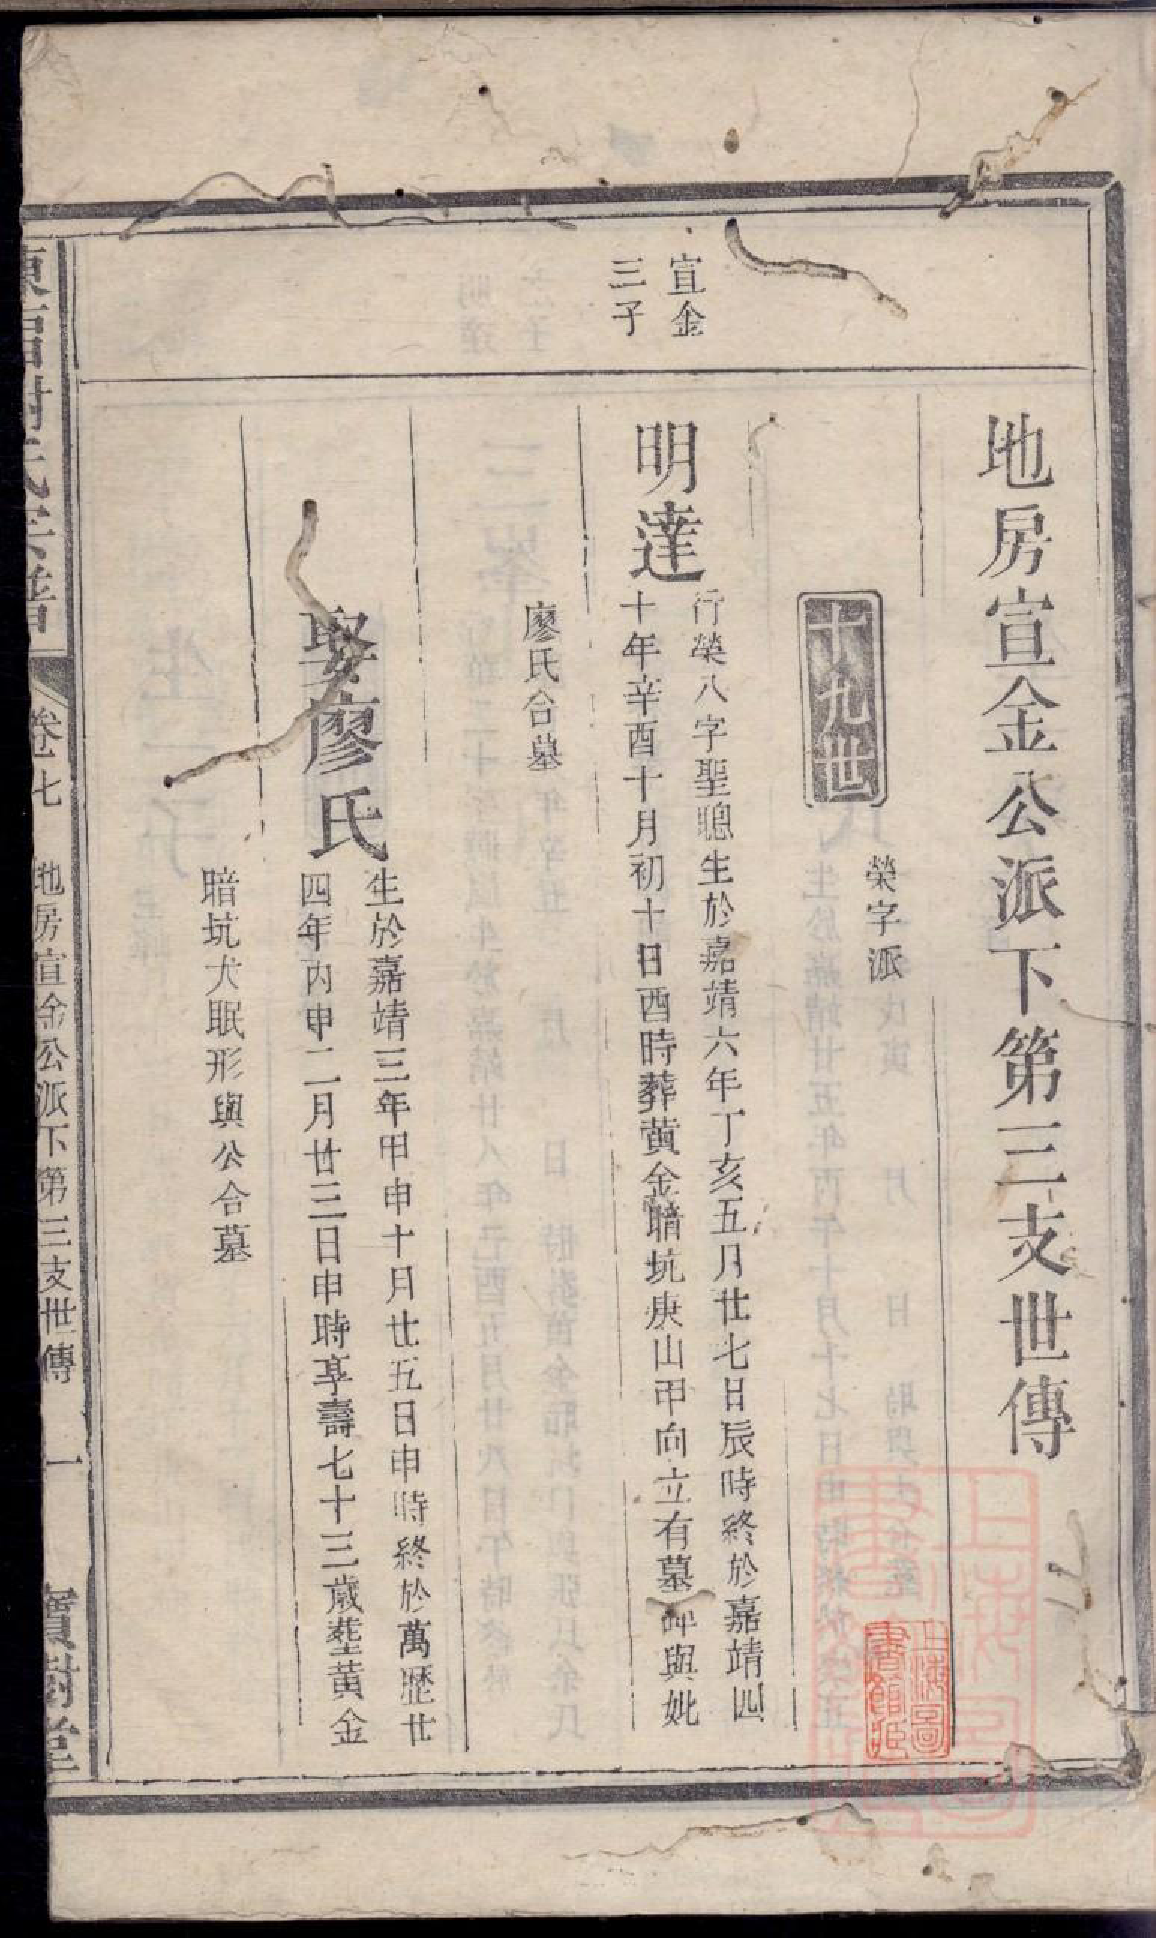 地房宣金公派下第三支世傳
十九世
榮字派
宣金
三子
明達
行榮八字聖聰生於嘉靖六年丁亥五月廿七日辰時終於嘉靖四
十年辛酉十月初十日酉時葬黄金暗坑庚山甲向立有墓碑與妣
廖氏合墓
娶廖氏
生於嘉靖三年甲申十月廿五日申時終於萬歷廿
四年丙申二月廿三日申時享壽七十三歲塟黄金
暗坑犬眠形與公合墓
氏宗譜
卷七
地房宣金公派下第三支世傳
一
寶樹堂
上海圖
書館